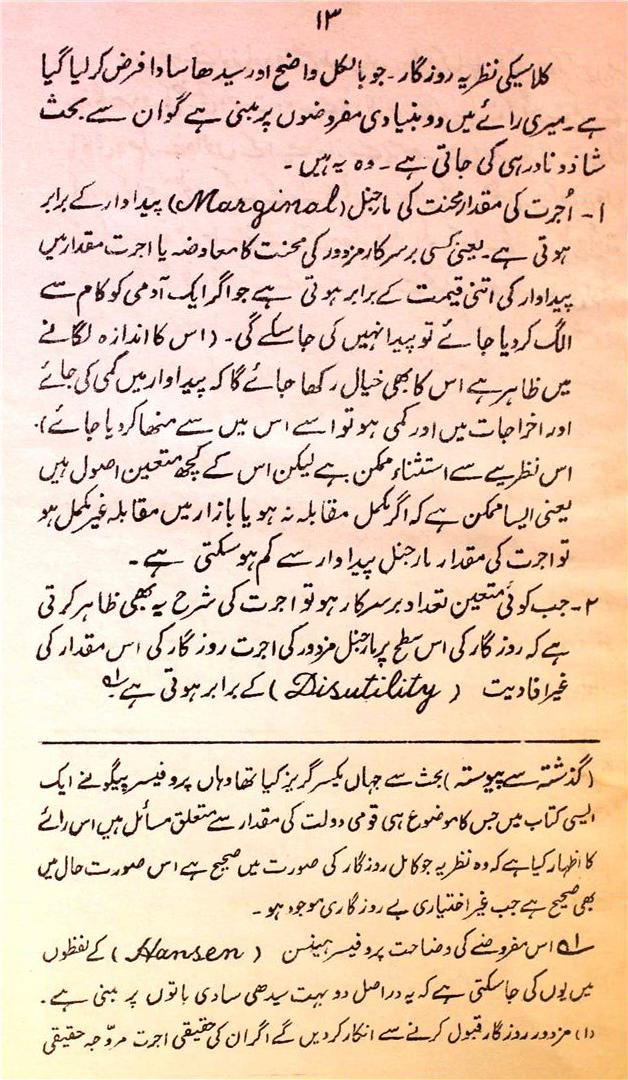 ۱۳
کلاسیکی نظریہ روزگار۔ جو بالکل واضح اور سیدھا سادا فرض کر لیا گیا
ہے۔ میری رائے میں دو بنیادی مفروضوں پر مبنی ہے گو ان سے بحث
شاذ و نادر ہی کی جاتی ہے۔ وہ یہ ہیں۔
۱۔ اُجرت کی مقدار محنت کی مارجنل (Marginal) پیداوار کے برابر
ہوتی ہے۔ یعنی کسی برسر کار مزدور کی محنت کا معاوضہ یا اجرت مقدار میں
پیداوار کی اتنی قیمت کے برابر ہوتی ہے جو اگر ایک آدمی کو کام سے
الگ کر دیا جائے تو پیدا نہیں کی جا سکے گی۔ (اس کا اندازہ لگانے
میں ظاہر ہے اس کا بھی خیال رکھا جائے گا کہ پیداوار میں کمی کی جائے
اور اخراجات میں اور کمی ہو تو اسے اس میں سے منھا کر دیا جائے)۔
اس نظریے سے استثناء ممکن ہے لیکن اس کے کچھ متعین اصول ہیں
یعنی ایسا ممکن ہے کہ اگر مکمل مقابلہ نہ ہو یا بازار میں مقابلہ غیر مکمل ہو
تو اجرت کی مقدار مارجنل پیداوار سے کم ہو سکتی ہے۔
۲۔ جب کوئی متعین تعداد برسر کار ہو تو اجرت کی شرح یہ بھی ظاہر کرتی
ہے کہ روزگار کی اس سطح پر مارجنل مزدور کی اجرت روزگار کی اس مقدار کی
غیر افادیت (Disutility) کے برابر ہوتی ہے۔ ؎۱
(گذشتہ سے پیوستہ) بحث سے جہاں یکسر گریز کیا تھا وہاں پروفیسر پیگو نے ایک
ایسی کتاب میں جس کا موضوع ہی قومی دولت کی مقدار سے متعلق مسائل ہیں اس رائے
کا اظہار کیا ہے کہ وہ نظریہ جو کامل روزگار کی صورت میں صحیح ہے اس صورت حال میں
بھی صحیح ہے جب غیر اختیاری بے روزگاری موجود ہو۔
؎۱ اس مفروضے کی وضاحت پروفیسر ہینسن (Hansen) کے لفظوں
میں یوں کی جا سکتی ہے کہ یہ دراصل دو بہت سیدھی سادی باتوں پر مبنی ہے۔
(۱) مزدور روزگار قبول کرنے سے انکار کر دیں گے اگر ان کی حقیقی اجرت مروّجہ حقیقی